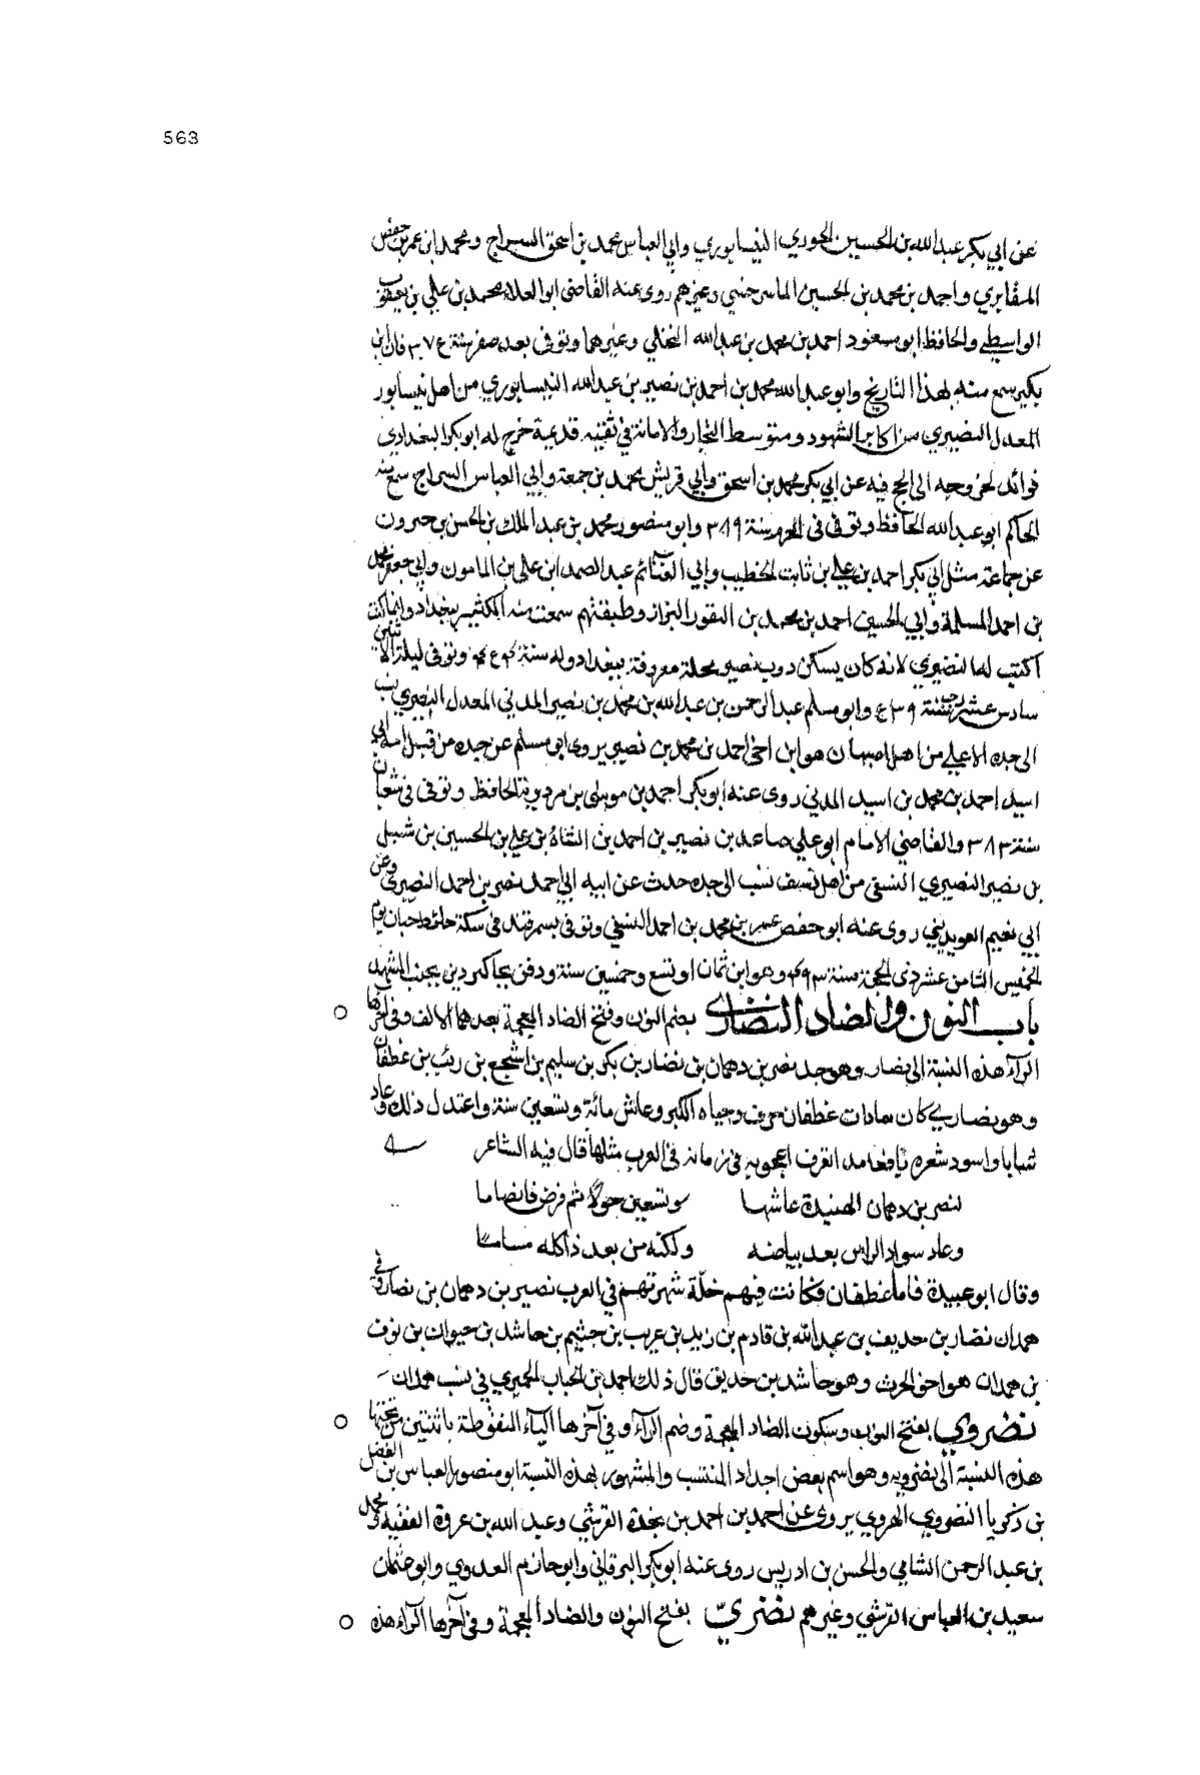 563
عن ابي بكر عبدالله بن الحسين الجوري النيسابوري وابي العباس محمد بن اسحق السراج ومحمد ابن عمر بن حفص
المقابري واحمد بن محمد بن الحسين الماسرجسي وغيرهم روى عنه القاضى ابو العلاء محمد بن علي بن يعقوب
الواسطي والحافظ ابو مسعود احمد بن محمد بن عبدالله البجلي وغيرهما وتوفى بعد صفر سنة ٣٧٤ فان ابن
بكير سمع منه بهذا التاريخ وابو عبدالله محمد بن احمد بن نصير بن عبدالله النيسابوري من اهل نيسابور
المعدل النصيري من اكابر الشهود ومتوسط التجار والامانة في تقيته قديمة خرج له ابو بكر البغدادي
فوائد لخروجه الى الحج فيه عن ابي بكر محمد بن اسحق وابي قريش محمد بن جمعة وابي العباس السراج سمع منه
الحاكم ابو عبدالله الحافظ وتوفى فى المحرم سنة ٣٨٩ وابو منصور محمد بن عبد الملك بن الحسن بن خيرون
عن جماعة مثل ابي بكر احمد بن علي بن ثابت الخطيب وابي الغنائم عبد الصمد ابن علي بن المامون وابي جعفر محمد
بن احمد المسلمة وابي الحسين احمد بن محمد بن النقور البزاز وطبقتهم سمعت منه الكثير ببغداد وانما كنت
اكتب لها النصيري لانه كان يسكن درب نصير محلة معروفة ببغداد ولد سنة وتوفى ليلة الاثنين
سادس عشر رجب سنة وابو مسلم عبد الرحمن بن عبدالله بن محمد بن نصير المديني المعدل النصيري نسب
الى جده الاعلى من اهل اصبهان هو ابن اخى احمد بن محمد بن نصير يروى ابو مسلم عن جده من قبل امه ابي
اسيد احمد بن محمد بن اسيد المديني روى عنه ابو بكر احمد بن موسى بن مردويه الحافظ وتوفى فى شعبان
سنة ٣٨٣ والقاضي الامام ابو علي صاعد بن نصير بن احمد بن الشاه بن علي بن الحسين بن شبيل
بن نصير النصيري النسفى من اهل نسف نسب الى جده حدث عن ابيه ابي احمد نصير بن احمد النصيرى وعن
ابي نعيم العويديني روى عنه ابو حفص عمر بن محمد بن احمد النسفي وتوفى بسمرقند فى سكة حائط حيان يوم
الخميس الثامن عشر ذى الحجة سنة وهو ابن ثمان او تسع وخمسين سنة ودفن بجاكرديزه بجنب المشهد
باب النون والضاد النضارى بضم النون وفتح الضاد المعجمة بعدهما الالف وفى اخرها ○
الرآء هذه النسبة الى نضار وهو جد نصر بن دهمان بن نضار بن بكر بن سليم بن اشجع بن ريث بن غطفان
وهو نضاري كان سادات غطفان خرف وحياه الكبر وعاش مائة وتسعين سنة واعتدل ذلك وعاد
شبابا واسود شعره يافعا مد القرف اعجوبه فى زمانه فى العرب مثلها قال فيه الشاعر
لنصر بن دهمان الهنيدة عاشها وتسعين حولا ثم فرض فانصاما
وعاد سواد الراس بعد بياضه ولكنه من بعد ذا كله ماتا
وقال ابو عبيدة فاما غطفان فكانت فيهم خلّة شهرتهم في العرب نصير بن دهمان بن نضار وفي
همدان نضار بن حديف بن عبدالله بن قادم بن زيد بن عريب بن جشيم بن حاشد بن حيوان بن نوف
بن همدان هو اخو الحرث وهو حاشد بن حديق قال ذلك احمد بن الحباب الحميري في نسب همدان
نضروي بفتح النون وسكون الضاد المعجمة وضم الرآء وفي آخرها اليآء المنقوطة باثنتين من تحتها ○
هذه النسبة الى نضرويه وهو اسم بعض اجداد المنتسب والمشهور بهذه النسبة ابو منصور العباس بن الفضل
بن زكريا النضروي الهروي يروى عن احمد بن احمد بن نجدة القرشي وعبد الله بن عروة الفقيه ومحمد
بن عبد الرحمن الشامي والحسن بن ادريس روى عنه ابو بكر البرقاني وابو حازم العدوي وابو عثمان
سعيد بن العباس القرشي وغيرهم نضريّ بفتح النون والضاد المعجمة وفى آخرها الرآء هذه ○